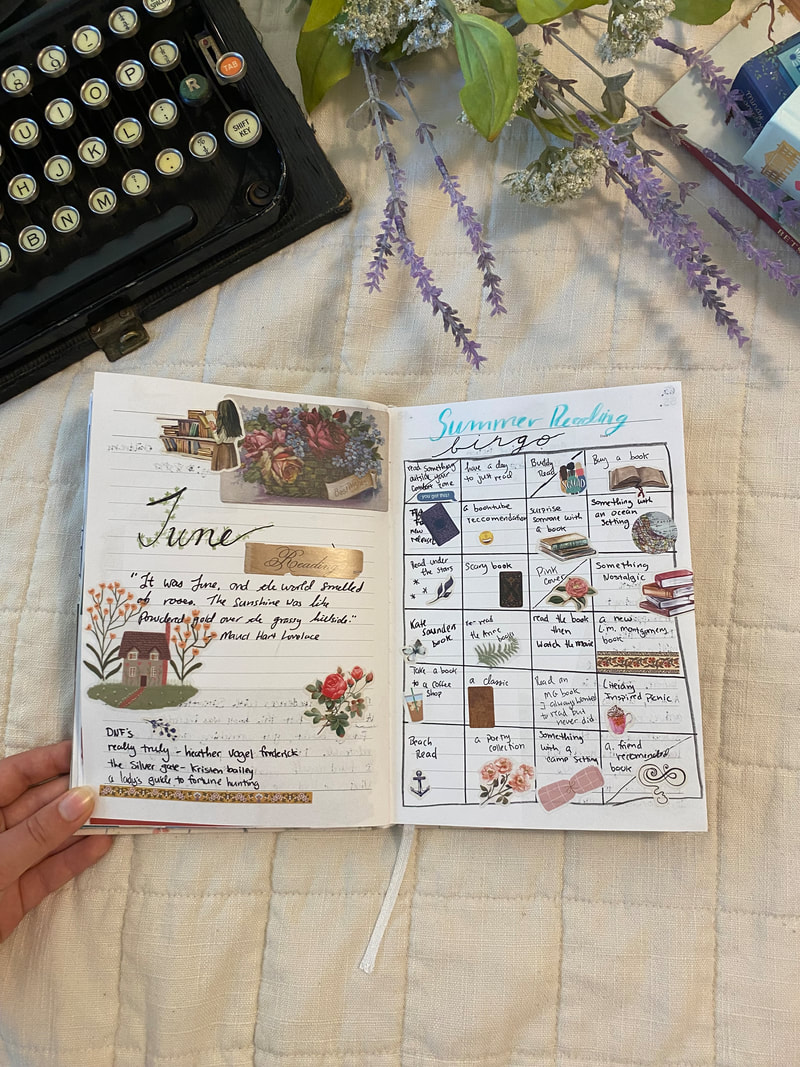 TAB
U I O P R
H J K L : SHIFT KEY
B N M
June
Reading
"It was June, and the world smelled
of roses. The sunshine was like
Powdered gold over the grassy hillside."
Maud Hart Lovelace
DNF's
really truly - heather vogel frederick
the silver gate - kristen bailey
a lady's guide to fortune hunting
Summer Reading
bingo
read something
outside your
comfort zone
you got this!
have a day
to just read
Buddy
Read
Buy a book
new
release
a booktube
reccomendation
surprise
someone with
a book
Something with
an ocean
setting
Read under
the stars
Scary book
Pink
cover
Something
Nostalgic
Kate
Saunders
book
read
the Anne
books
read the book
then
Watch the Movie
a new
L.m. montgomery
book
Take a book
to a coffee
shop
a classic
Read an
MG book
I always wanted
to read but
never did
Literary
Inspired Picnic
Beach
Read
a Poetry
Collection
Something
with a
camp setting
a friend
recomended
book